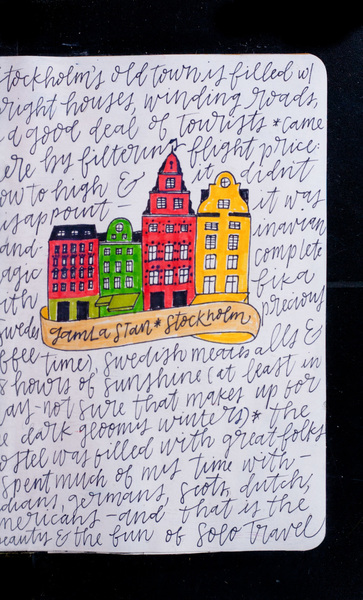 stockholm's old town is filled w/
bright houses, winding roads,
& a good deal of tourists * came
here by filtering flight price:
low to high & it didn't
disappoint - it was
and inavian
magic complete
with fika
swedes precious
coffee time), swedish meatballs &
8 hours of sunshine (at least in
may - not sure that makes up for
the dark gloomy winters) * the
hostel was filled with great folks
spent much of my time with -
indians, germans, scots, dutch,
americans - and that is the
beauty & the fun of solo travel
gamla stan * stockholm